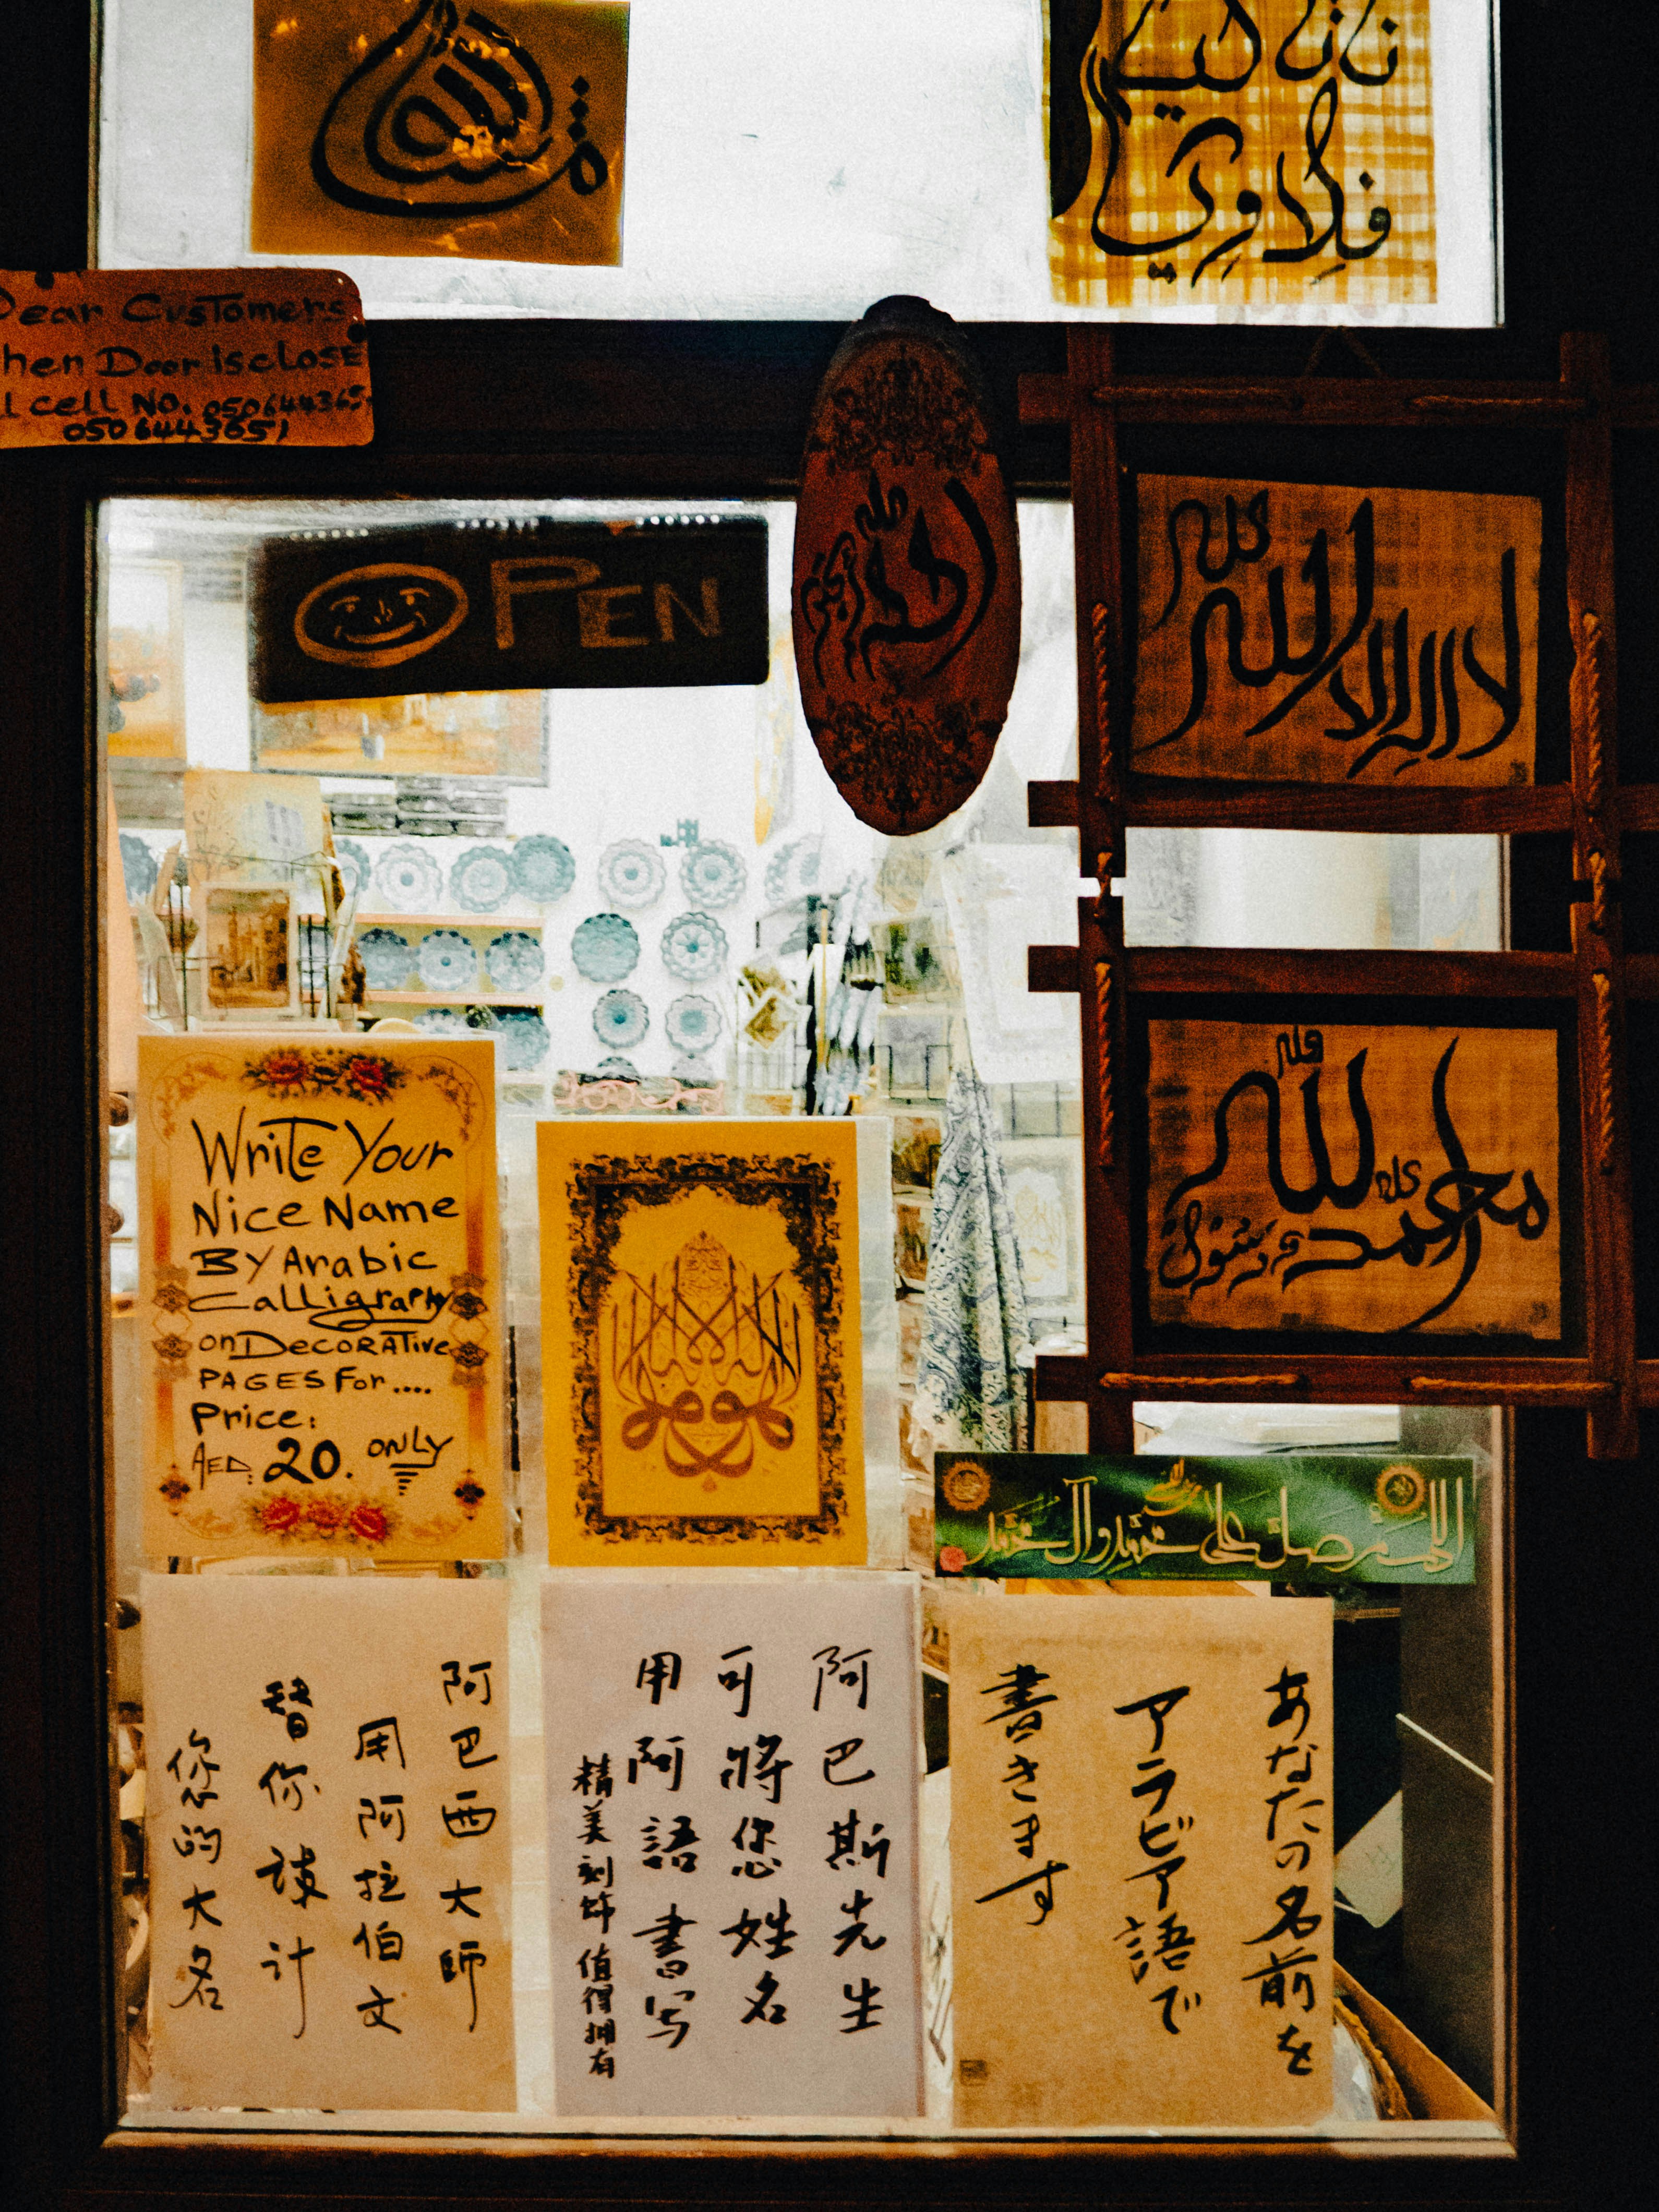 ما شاء الله
Dear Customers
hen Door Is cLOSE
l cell No. 0506443651
0506443651
OPEN
لا إله إلا الله
محمد رسول الله
Write Your
Nice Name
By Arabic
Calligraphy
on Decorative
PAGES For....
Price:
AED. 20. ONLY
اللهم صل على محمد وآل محمد
阿巴西大師
用阿拉伯文
替你設計
您的大名
阿巴斯先生
可將您姓名
用阿語書写
精美刻飾值得拥有
あなたの名前を
アラビア語で
書きます